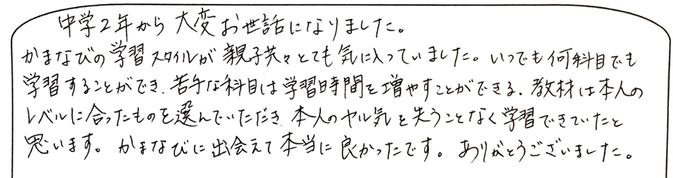 中学2年から大変お世話になりました。
かまなびの学習スタイルが親子共々とても気に入っていました。いつでも何科目でも
学習することができ、苦手な科目は学習時間を増やすことができる、教材は本人の
レベルに合ったものを選んでいただき、本人のヤル気を失うことなく学習できていたと
思います。かまなびに出会えて本当に良かったです。ありがとうございました。